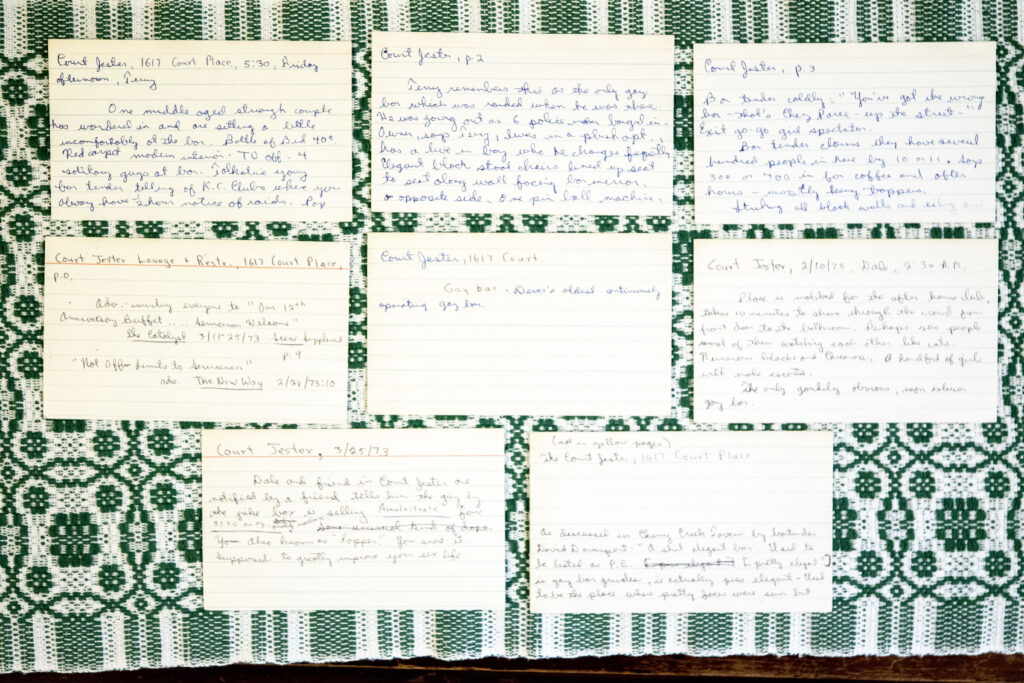 Court Jester, 1617 Court Place, 5:30, Friday
afternoon, Terry
One middle aged straight couple
has wandered in and are sitting a little
uncomfortably at the bar. Bottle of Bud 40¢.
Red carpet modern interior. TV off. 4
solitary guys at bar. Talkative young
bar tender telling of K.C. Clubs where you
always have 2 hour notice of raids. Pop
Court Jester, p. 2
Terry remembers this as the only gay
bar which was raided when he was there.
He was going out as 6 police men barged in.
Owner, says Terry, lives in a plush apt,
has a live in boy who he changes frequently.
Elegant black stool chairs lined up seat
to seat along wall facing bar mirror.
on opposite side. One pin ball machine.
Court Jester, p. 3
Bar tender coldly: "You've got the wrong
bar - that's Chez Paree - up the street."
Exit go-go girl spectator.
Bar tender claims they have several
hundred people in here by 10 or 11. Says
300 or 400 in for coffee and after
hours - mostly teeny boppers.
all black walls and
Court Jester Lounge + Restr., 1617 Court Place,
p.o.
Adv. inviting everyone to "Our 12th
Anniversary Buffet .... Servicemen Welcome"
The Catalyst 3/11-25/73 Supplement
p. 9
"Not Off Limits to Servicemen"
adv. The New Way 2/28/73:10
Court Jester, 1617 Court
Gay bar. Denver's oldest continuously
operating gay bar.
Court Jester, 2/10/73, Dale, 2:30 A.M.
Place is mobbed for the after hours club.
takes 10 minutes to shove through the crowd from
front door to the ballroom. Perhaps 200 people
most of them watching each other like cats.
Numerous blacks and Chicanos. A handful of girls
with male escorts.
The only gaudily obvious, neon exterior
gay bar.
Court Jester, 3/25/73
Dale and friend in Court Jester are
notified by a friend tells him the guy by
the juke box is selling Amylnitrate for
$1.50 an
Some unusual kind of dope
also known as "Popper" You snort it.
Supposed to greatly improve your sex life
(not in yellow pages)
The Court Jester, 1617 Court Place
As discussed in Cherry Creek Tavern by bartender
David Davenport: "A shit elegant bar. Used to
be listed as P.E. [pretty elegant]
in gay bar guides, is actually piss elegant. Used
to be the place where pretty faces were seen but